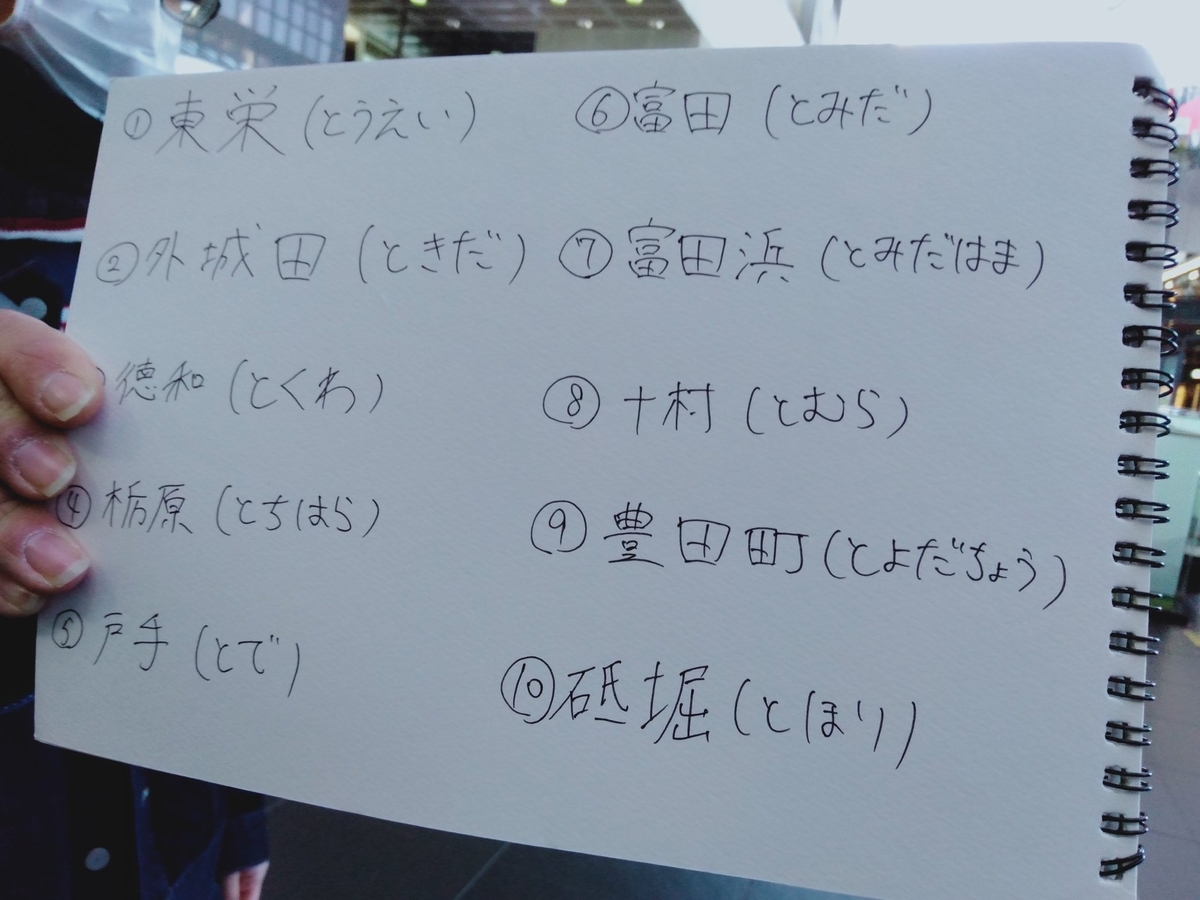 ①東栄(とうえい)
②外城田(ときだ)
徳和(とくわ)
④栃原(とちはら)
⑤戸手(とで)
⑥富田(とみだ)
⑦富田浜(とみだはま)
⑧十村(とむら)
⑨豊田町(とよだちょう)
⑩砥堀(とほり)